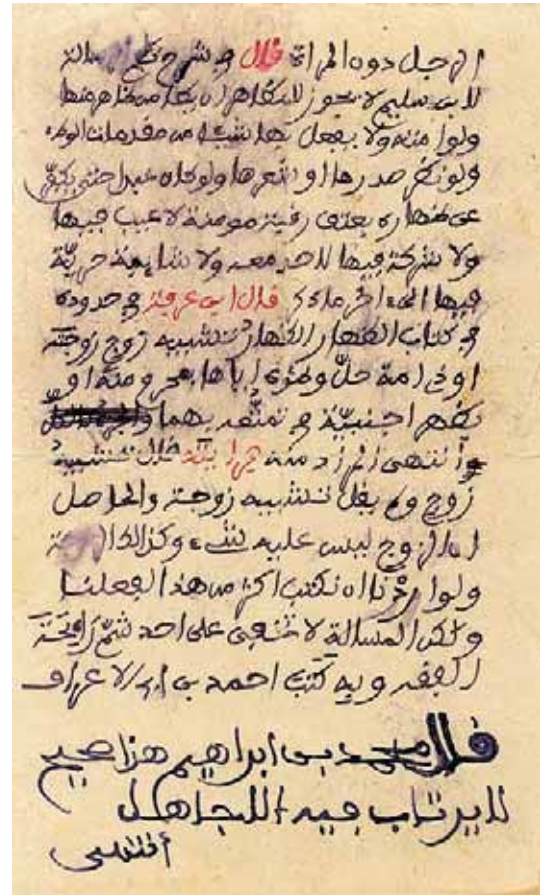 الرجل دون المراة قال في شرح رسالة
لابن سليم لا يجوز للمظاهر ان يطا من ظاهر منها
ولو امنه ولا يفعل بها شيئا من مقدمات
ولو نظر صدرها او شعرها ولو كان عبدا حتى يكفر
عن ظهاره بعتق رقبة مومنة لا عيب فيها
ولا شركة فيها لاحد معه ولا شايبة حرية
فيها الى اخر ما قال ابن عرفة في حدوده
في كتاب الظهار الظهار تشبيه زوج زوجته
او ذي امة حل وطؤه اياها بمحرم منه او
بظهر اجنبية في تمتعه بهما
انتهى المراد منه قال تشبيه
زوج ولم يقل تشبيه زوجة والحاصل
ان الزوج ليس عليه شيء وكذلك
ولو اردنا ان نكتب اكثر من هذا لفعلنا
ولكن المسالة لا تخفى على احد شم رايحة
الفقه وبه كتب احمد بن الاعراف
قال محمد بن ابراهيم هذا صحيح
لا يرتاب فيه الا الجاهل
انتهى